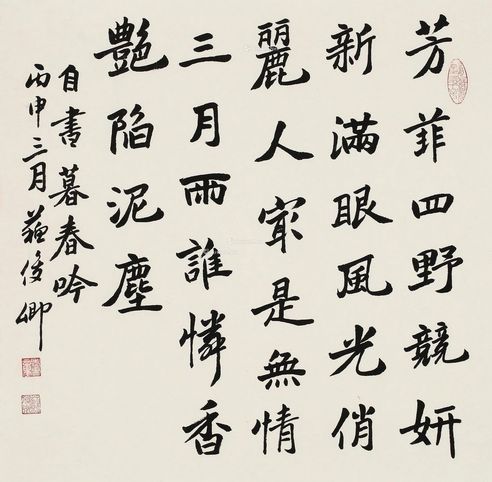 芳菲四野競妍
新滿眼風光俏
麗人寂是無情
三月雨誰憐香
艷陷泥塵
自書暮春吟
丙申三月蘇俊卿